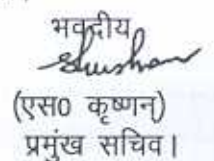 भवदीय,
(एस0 कृष्णन्)
प्रमुंख सचिव।